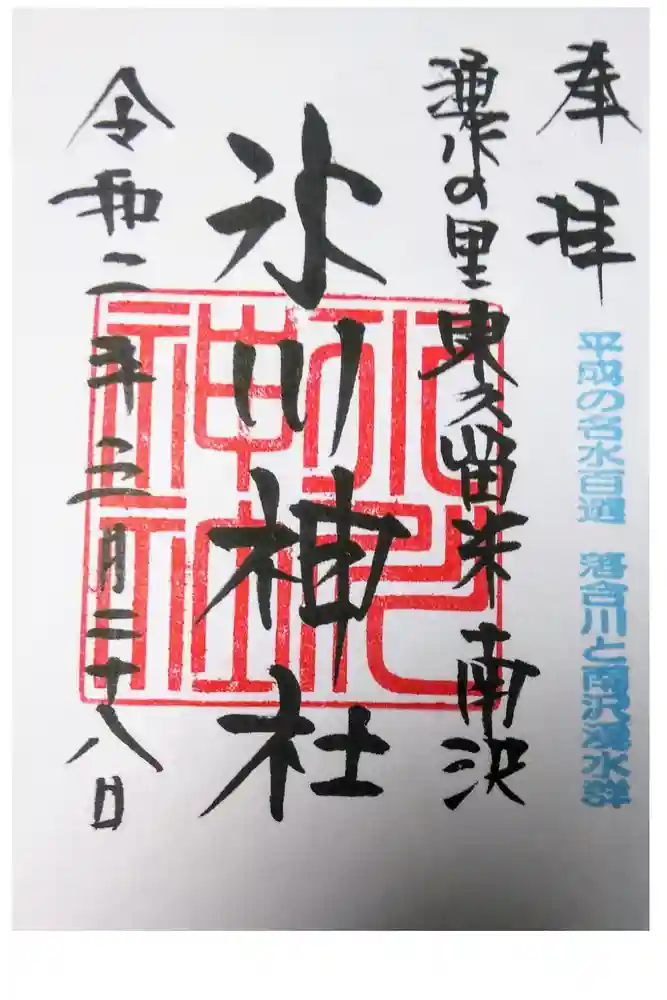 奉拝
平成の名水百選 落合川と南沢湧水群
湧水の里 東久留米 南沢
氷川神社
令和二年二月二十八日